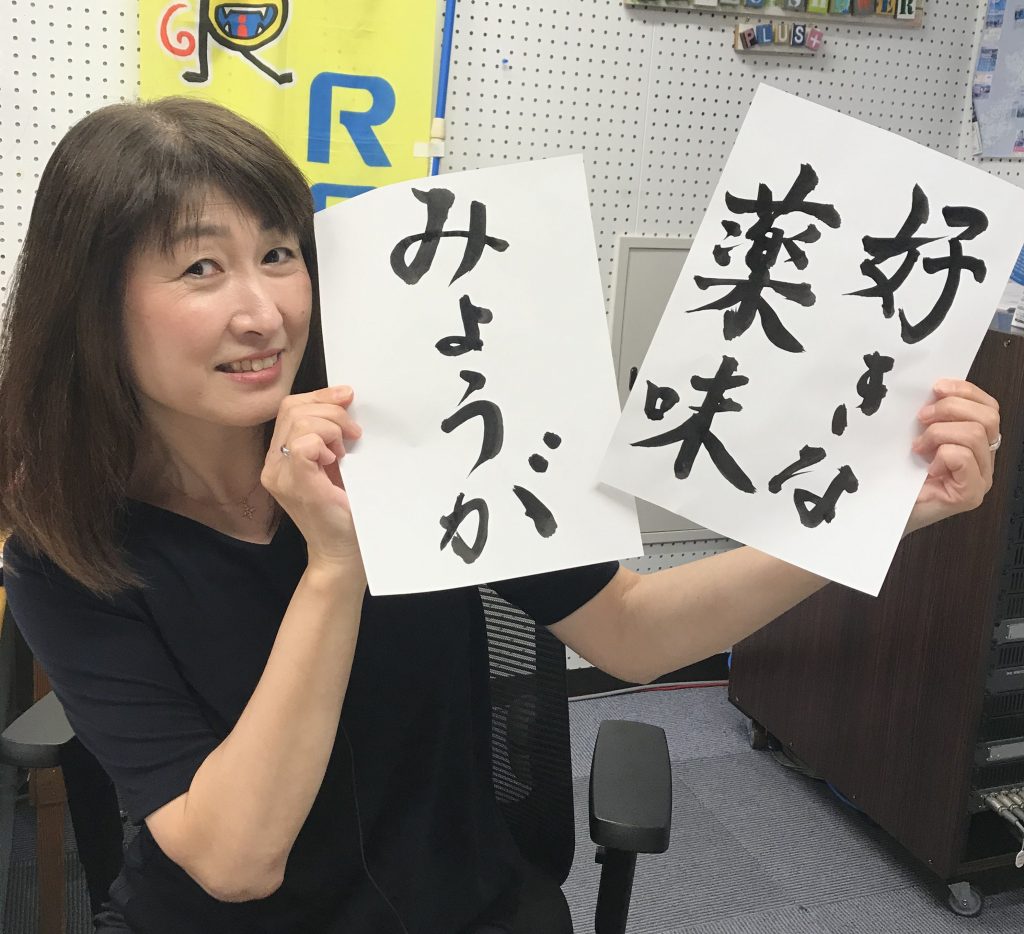 PLUS+
R
好きな
薬味
みょうが